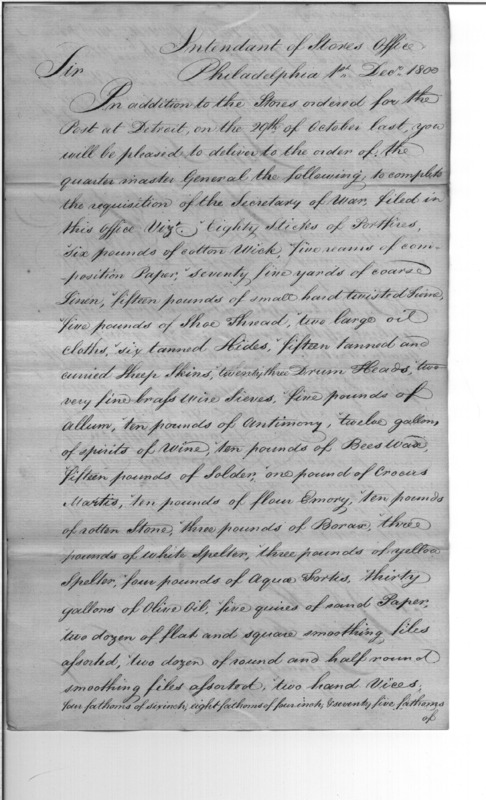 Intendant of Stores Office
Sir Philadelphia 1st. Decr. 1800
In addition to the Stores ordered for the
Post at Detroit, on the 29th of October last, you
will be pleased to deliver to the order of, the
quarter master General the following, to complete
the requisition of the Secretary of War, filed in
this office Vizt. "Eighty Sticks of Portfires,
"Six pounds of cotton Wick, "five reams of com-
position Paper, "seventy five yards of coarse
Linen, "fifteen pounds of small hard twisted Twine,
"five pounds of Shoe Thread, "two large oil
Cloths, "six tanned Hides, "fifteen tanned and
curried Sheep Skins, "twenty three Drum Heads, two
very fine brass Wire Sieves, "five pounds of
Allum, ten pounds of Antimony, "twelve gallons
of spirits of Wine, "ten pounds of Bees Wax,
"fifteen pounds of Solder, "one pound of Crocus
Martis, "ten pounds of flour Emory, "ten pounds
of rotten Stone, "three pounds of Borax, "three
pounds of white Spelter, "three pounds of yellow
Spelter, "four pounds of Aqua Fortis, thirty
gallons of Olive Oil, "five quires of sand Paper,
two dozen of flat and square smoothing files
assorted, "two dozen of round and half round
smoothing files assorted, "two hand Vices,
four fathoms of six inch, eight fathoms of four inch, & seventy five fathoms
of